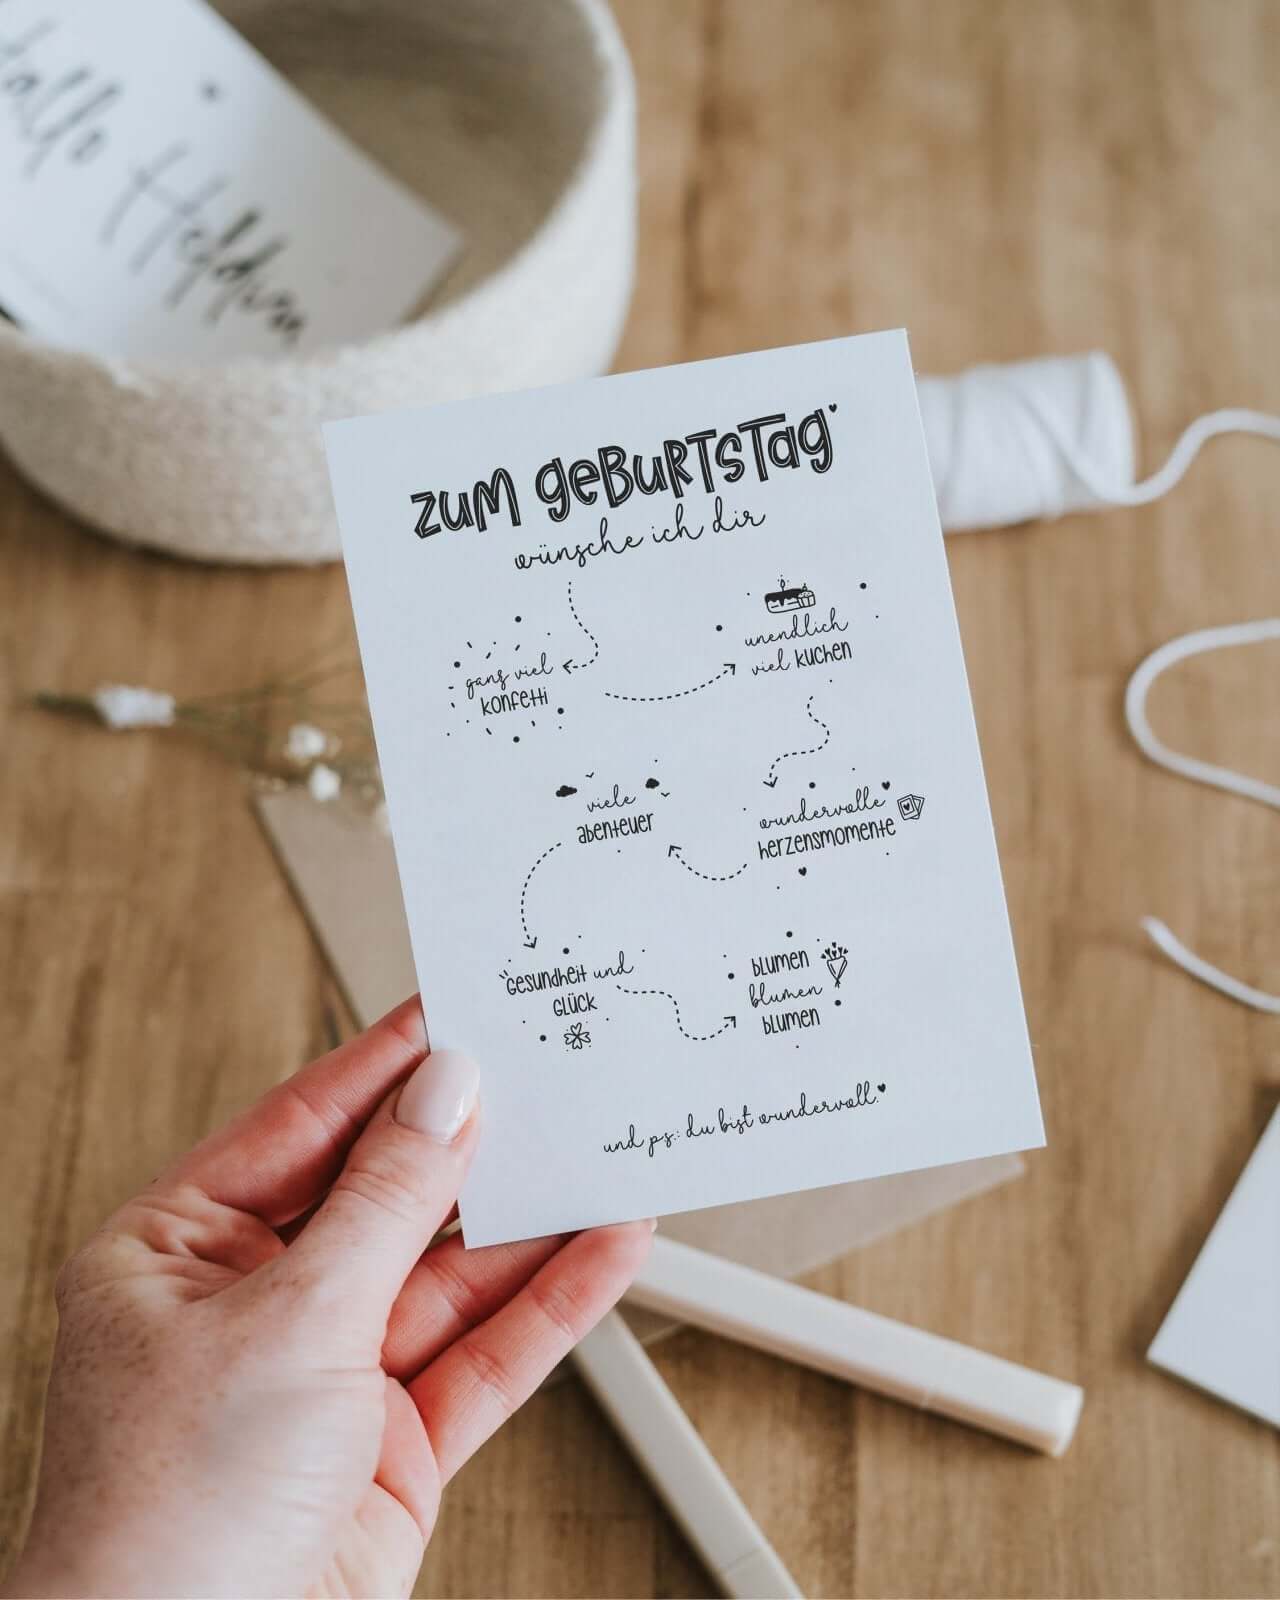 Hallo Hebdam
zum geburtstag
wünsche ich dir
ganz viel
konfetti
unendlich
viel kuchen
wundervolle
herzensmomente
viele
abenteuer
gesundheit und
glück
blumen
blumen
blumen
und ps.: du bist wundervoll.